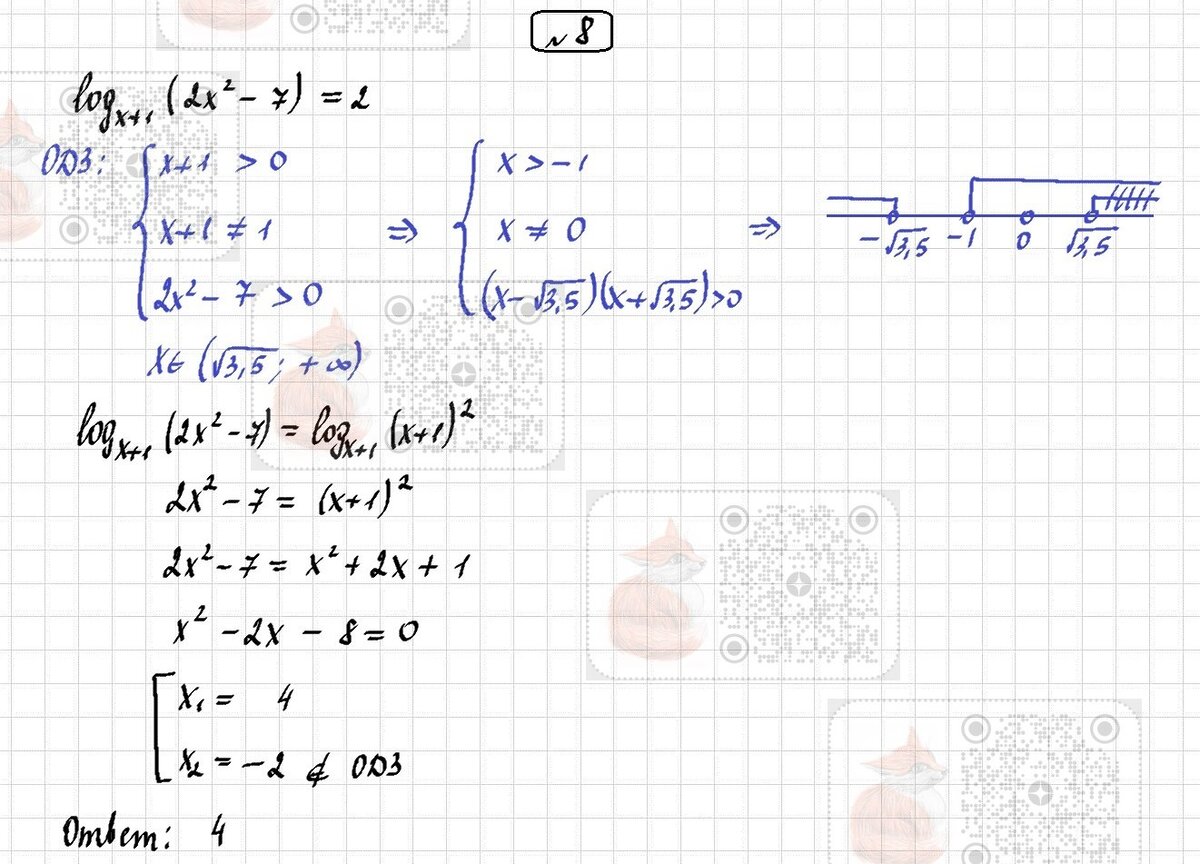 № 8
log_{x+1} (2x² - 7) = 2
ОДЗ: { x+1 > 0 ⇒ { x > -1
x+1 ≠ 1 x ≠ 0 ⇒
2x² - 7 > 0 (x-√3,5)(x+√3,5)>0
-√3,5 -1 0 √3,5
x∈ (√3,5; +∞)
log_{x+1} (2x² - 7) = log_{x+1} (x+1)²
2x² - 7 = (x+1)²
2x² - 7 = x² + 2x + 1
x² - 2x - 8 = 0
[ x₁ = 4
x₂ = -2 ∉ ОДЗ
Ответ: 4